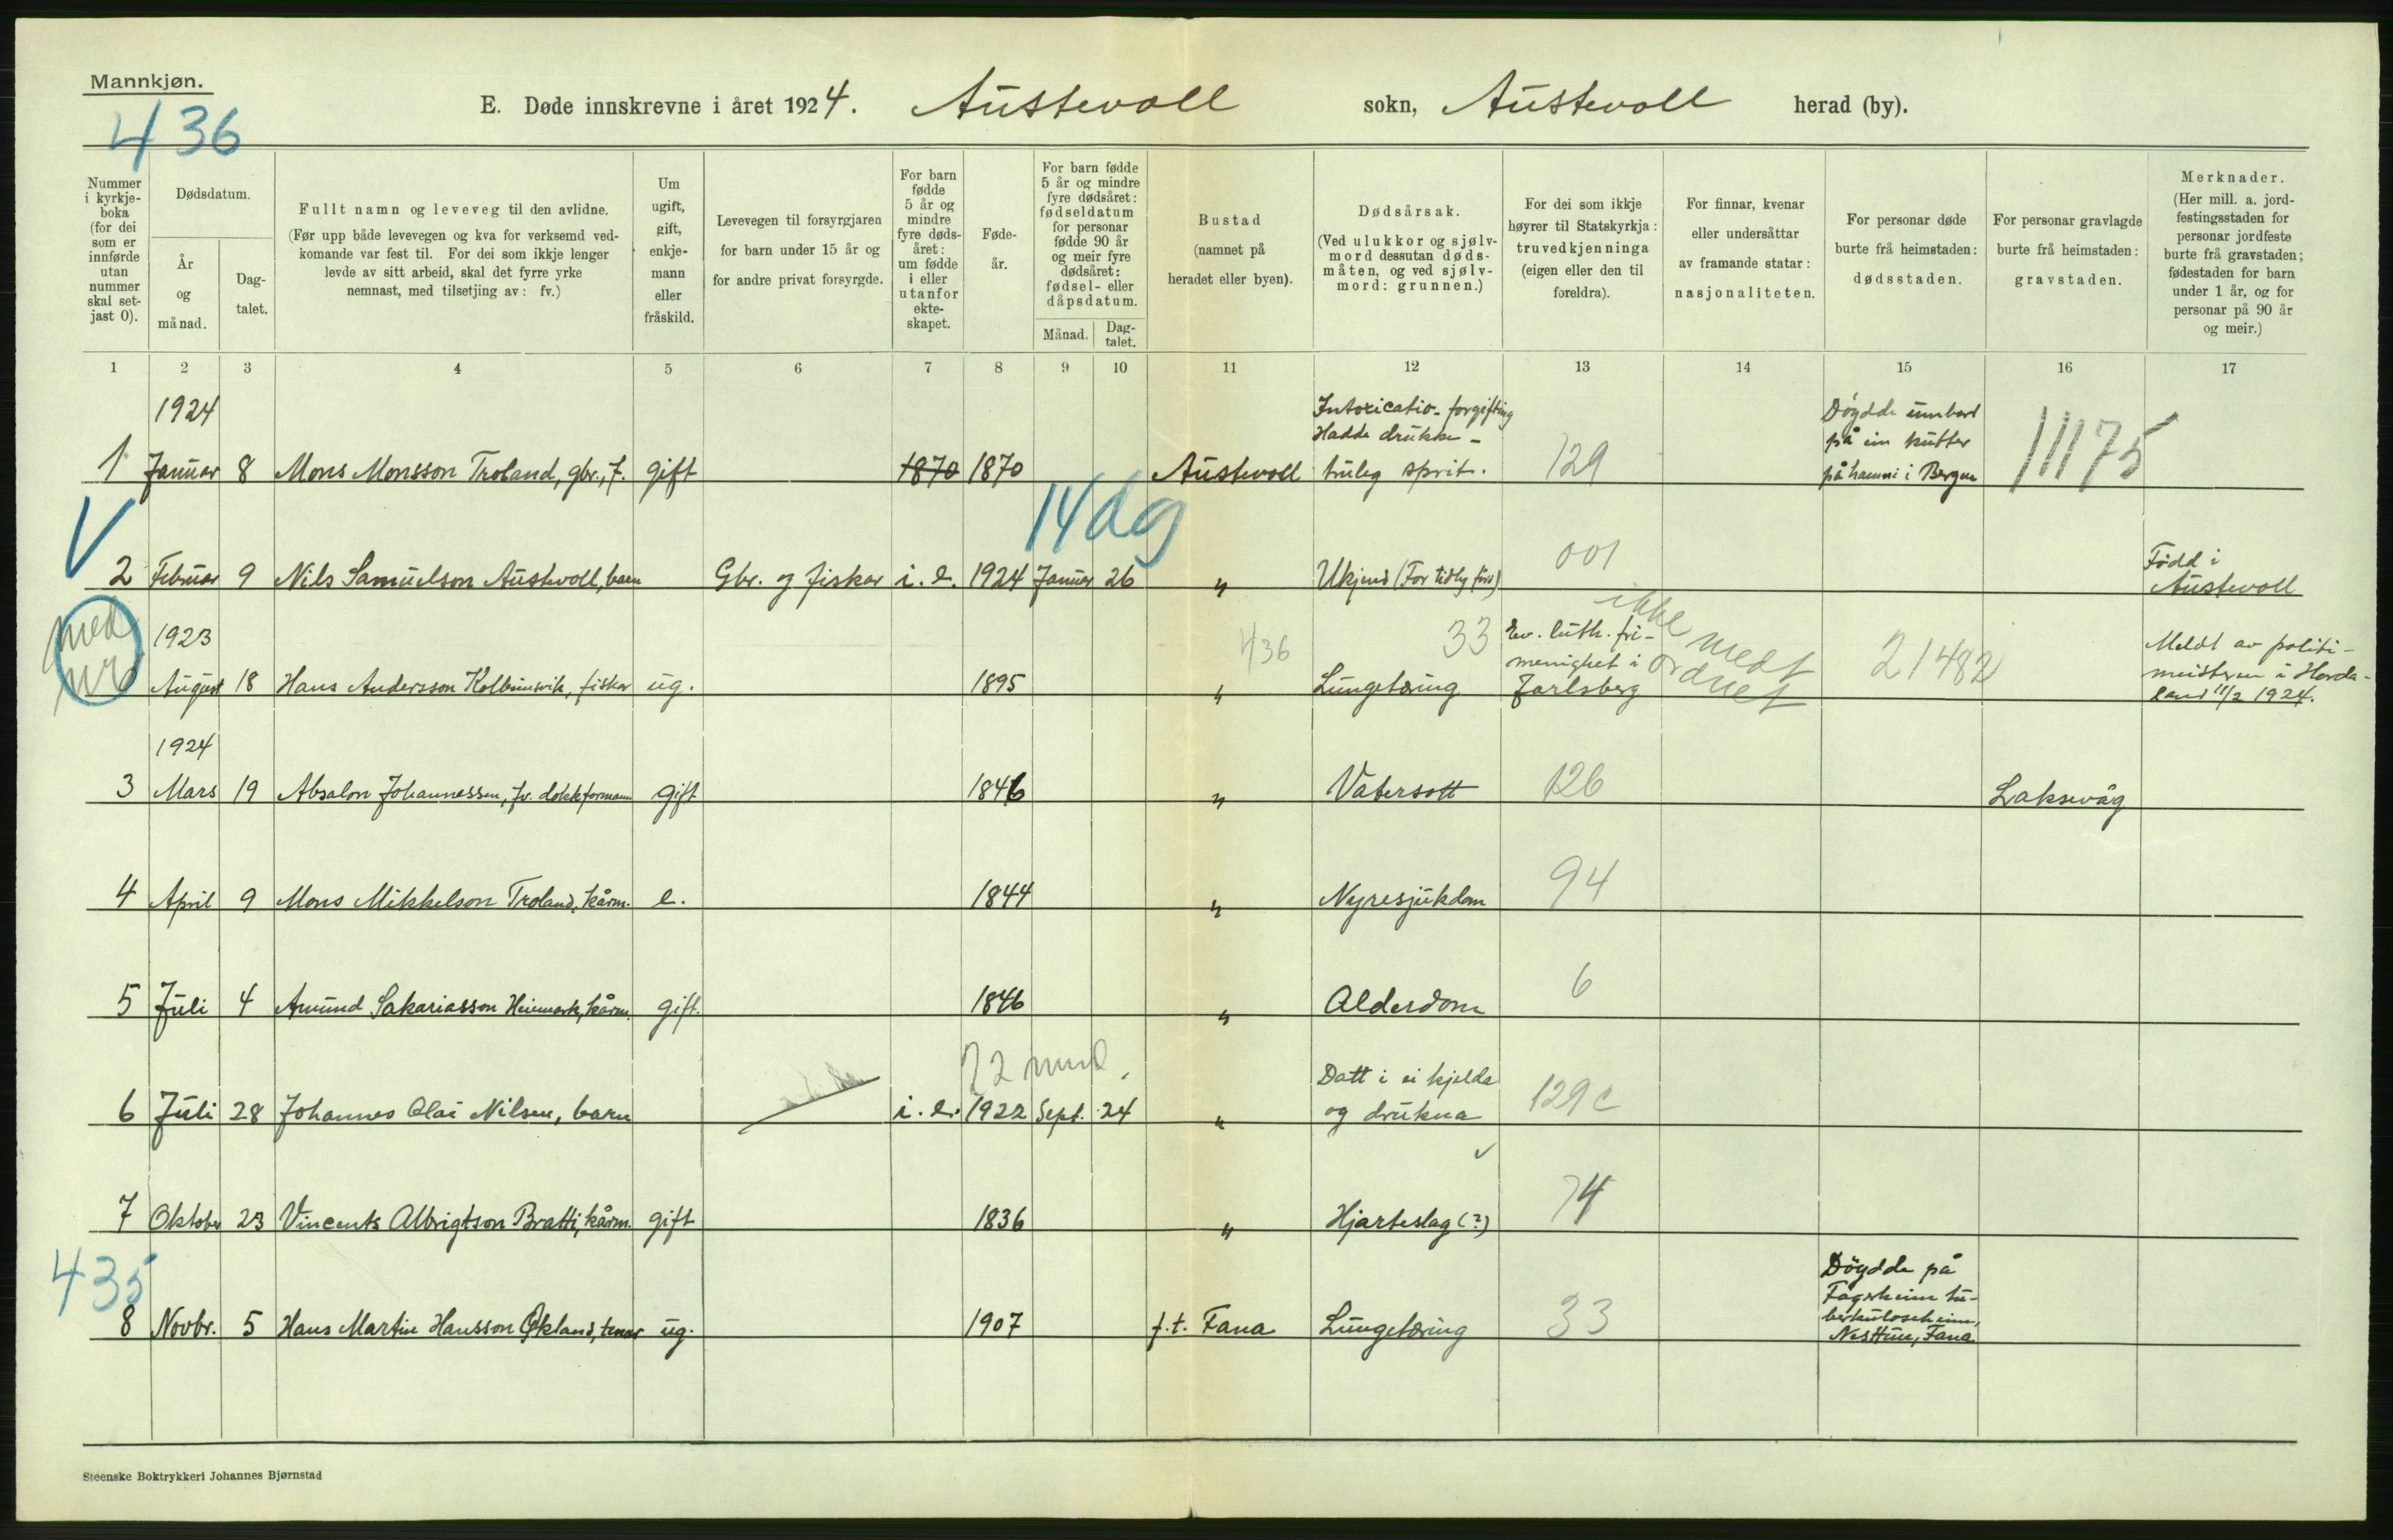 Mannkjøn.
436
E. Døde innskrevne i året 1924. Austevoll sokn, Austevoll herad (by).
Nummer i kyrkje-boka (for dei som er innførde utan nummer skal set-jast 0).
Dødsdatum.
År og månad.
Dag-talet.
Fullt namn og leveveg til den avlidne.
(Før upp både levevegen og kva for verksemd ved-
komande var fest til. For dei som ikkje lenger
levde av sitt arbeid, skal det fyrre yrke
nemnast, med tilsetjing av: fv.)
Um ugift, gift, enkje-mann eller fråskild.
Levevegen til forsyrgjaren
for barn under 15 år og
for andre privat forsyrgde.
For barn fødde 5 år og mindre fyre døds-året: um fødde i eller utanfor ekte-skapet.
Føde-år.
For barn fødde 5 år og mindre fyre dødsåret: fødseldatum for personar fødde 90 år og meir fyre dødsåret: fødsel- eller dåpsdatum.
Månad.
Dag-talet.
Bustad
(namnet på
heradet eller byen).
Dødsårsak.
(Ved ulukkor og sjølv-
mord dessutan døds-
måten, og ved sjølv-
mord: grunnen.)
For dei som ikkje
høyrer til Statskyrkja:
truvedkjenninga
(eigen eller den til
foreldra).
For finnar, kvenar
eller undersåttar
av framande statar:
nasjonaliteten.
For personar døde
burte frå heimstaden:
dødsstaden.
For personar gravlagde
burte frå heimstaden:
gravstaden.
Merknader.
(Her mill. a. jord-
festingsstaden for
personar jordfeste
burte frå gravstaden;
fødestaden for barn
under 1 år, og for
personar på 90 år
og meir.)
1 2 3 4 5 6 7 8 9 10 11 12 13 14 15 16 17
1924
Intoxicatio - forgifting
Hadde drukke -
Døydde umbord
på ein kutter
1 Januar 8 Mons Monsson Troland, gbr., f. gift 1870 1870 Austevoll truleg sprit. 129 på hamni i Bergen 11175
14 dg
2 Februar 9 Nils Samuelson Austevoll, barn Gbr. og fiskar i. e. 1924 Januar 26 " Ukjend (For tidleg född) 001 Född i
Austevoll
med
nr
1923
436 33 Ev. luth. fri-
menighet i
ikke medt ordnet
21482
Meldt av politi-
meisteren i Horda-
0 August 18 Hans Andersson Kolbeinsvik, fiskar ug. 1895 " Lungetæring Jarlsberg land 11/2 1924.
1924
3 Mars 19 Absalon Johannessen, fv. dokkformann gift 1846 " Vatersott 126 Laksevåg
4 April 9 Mons Mikkelson Troland, kårm. e. 1844 " Nyresjukdom 94
5 Juli 4 Amund Sakariasson Heimark, kårm. gift. 1846 " Alderdom 6
22 mnd.
Datt i ei kjelda
6 Juli 28 Johannes Olai Nilsen, barn i. e. 1922 Sept. 24 " og drukna 129c
7 Oktober 23 Vincents Albrigtson Bratti, kårm. gift 1836 " Hjarteslag (?) 74
435
Döydde på
Fagerheim tu-
berkuloseheim,
8 Novbr. 5 Hans Martin Hansson Økland, tenar ug. 1907 f.t. Fana Lungetæring 33 Nesttun, Fana
Steenske Boktrykkeri Johannes Bjørnstad